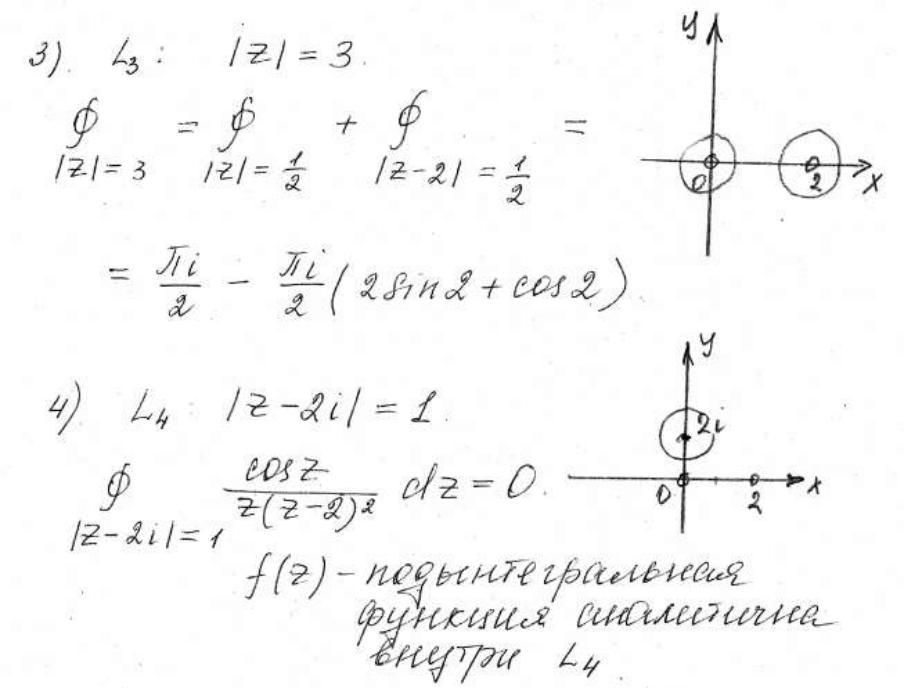 3). L₃: |z| = 3.
∮_{|z|=3} = ∮_{|z|=1/2} + ∮_{|z-2|=1/2} =
y
0 2 x
= πi/2 - πi/2 (2sin2 + cos2)
y
4) L₄ |z-2i| = 1.
2i
∮_{|z-2i|=1} cosz/(z(z-2)²) dz = 0.
0 2 x
f(z) - подынтегральная
функция аналитична
внутри L₄